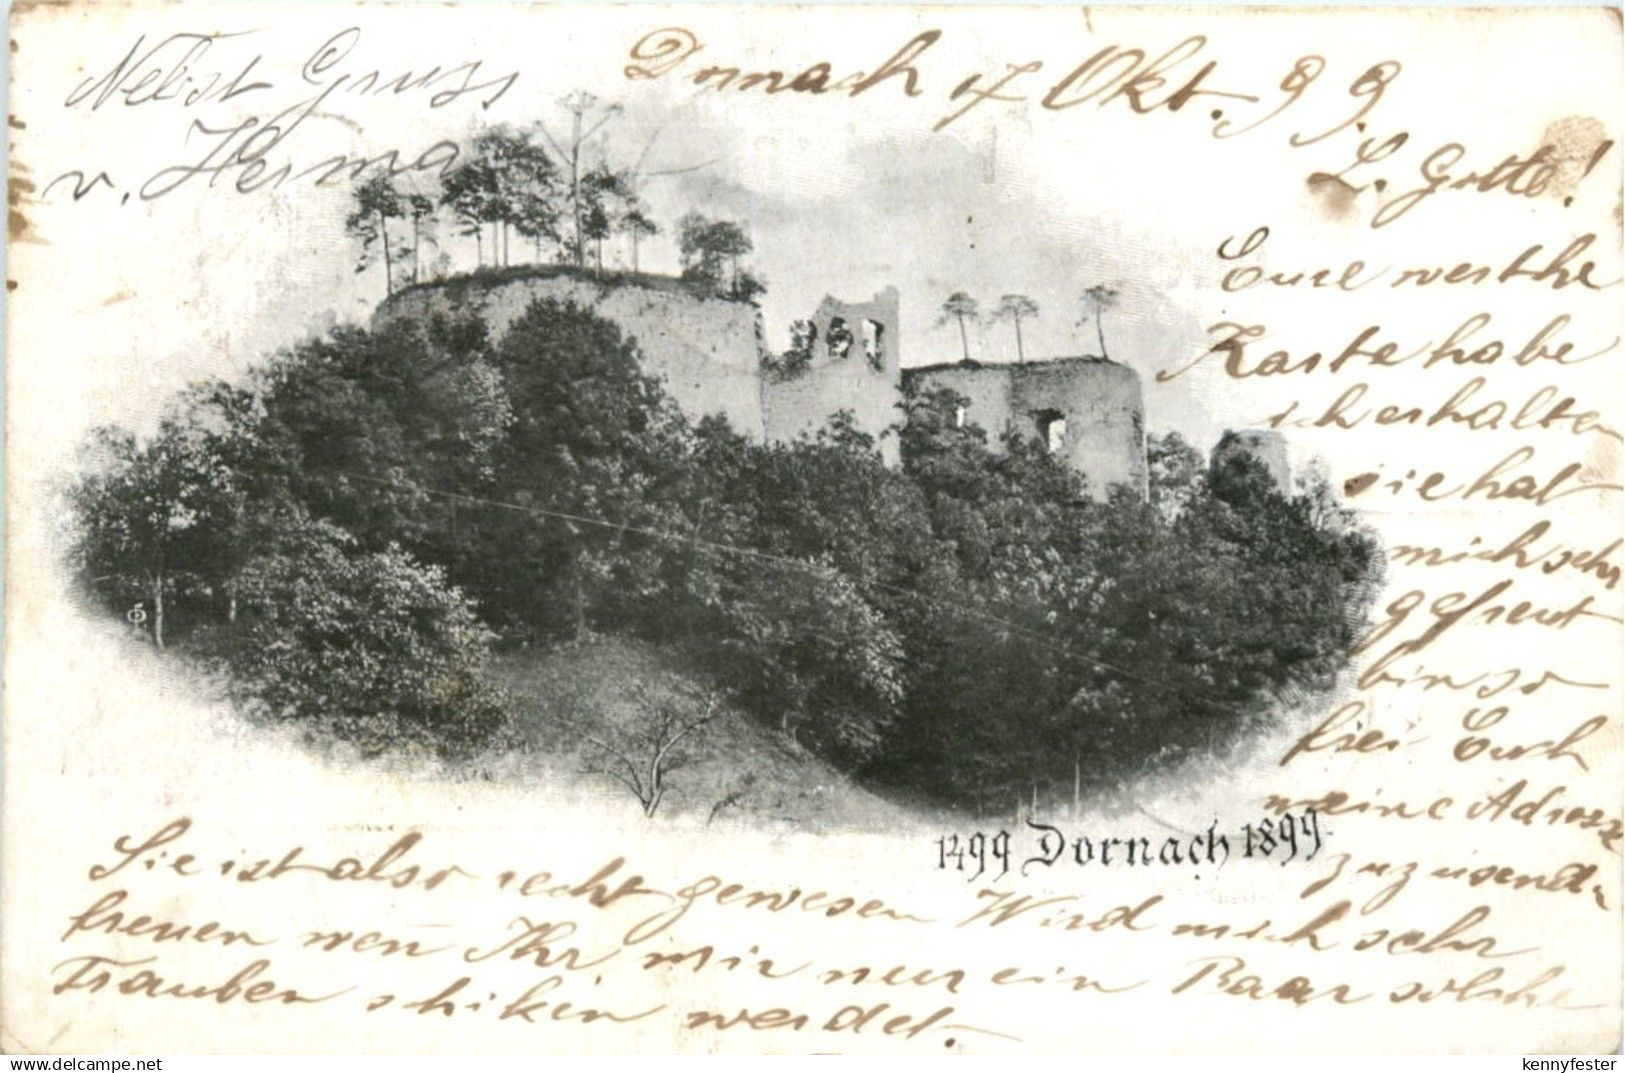 Nebst Gruss
v. Herma
Dornach 17 Okt. 99.
L. Gotte!
Eure werthe
Karte habe
ich erhalten
sie hat
mich sehr
gefreut
bin so
frei Euch
meine Adresse
zuzusenden
1499 Dornach 1899
Sie ist also recht gewesen Wird mich sehr
freuen wen̄ Ihr mir nur ein Baar solche
Trauben shiken werdet.
kennyfester